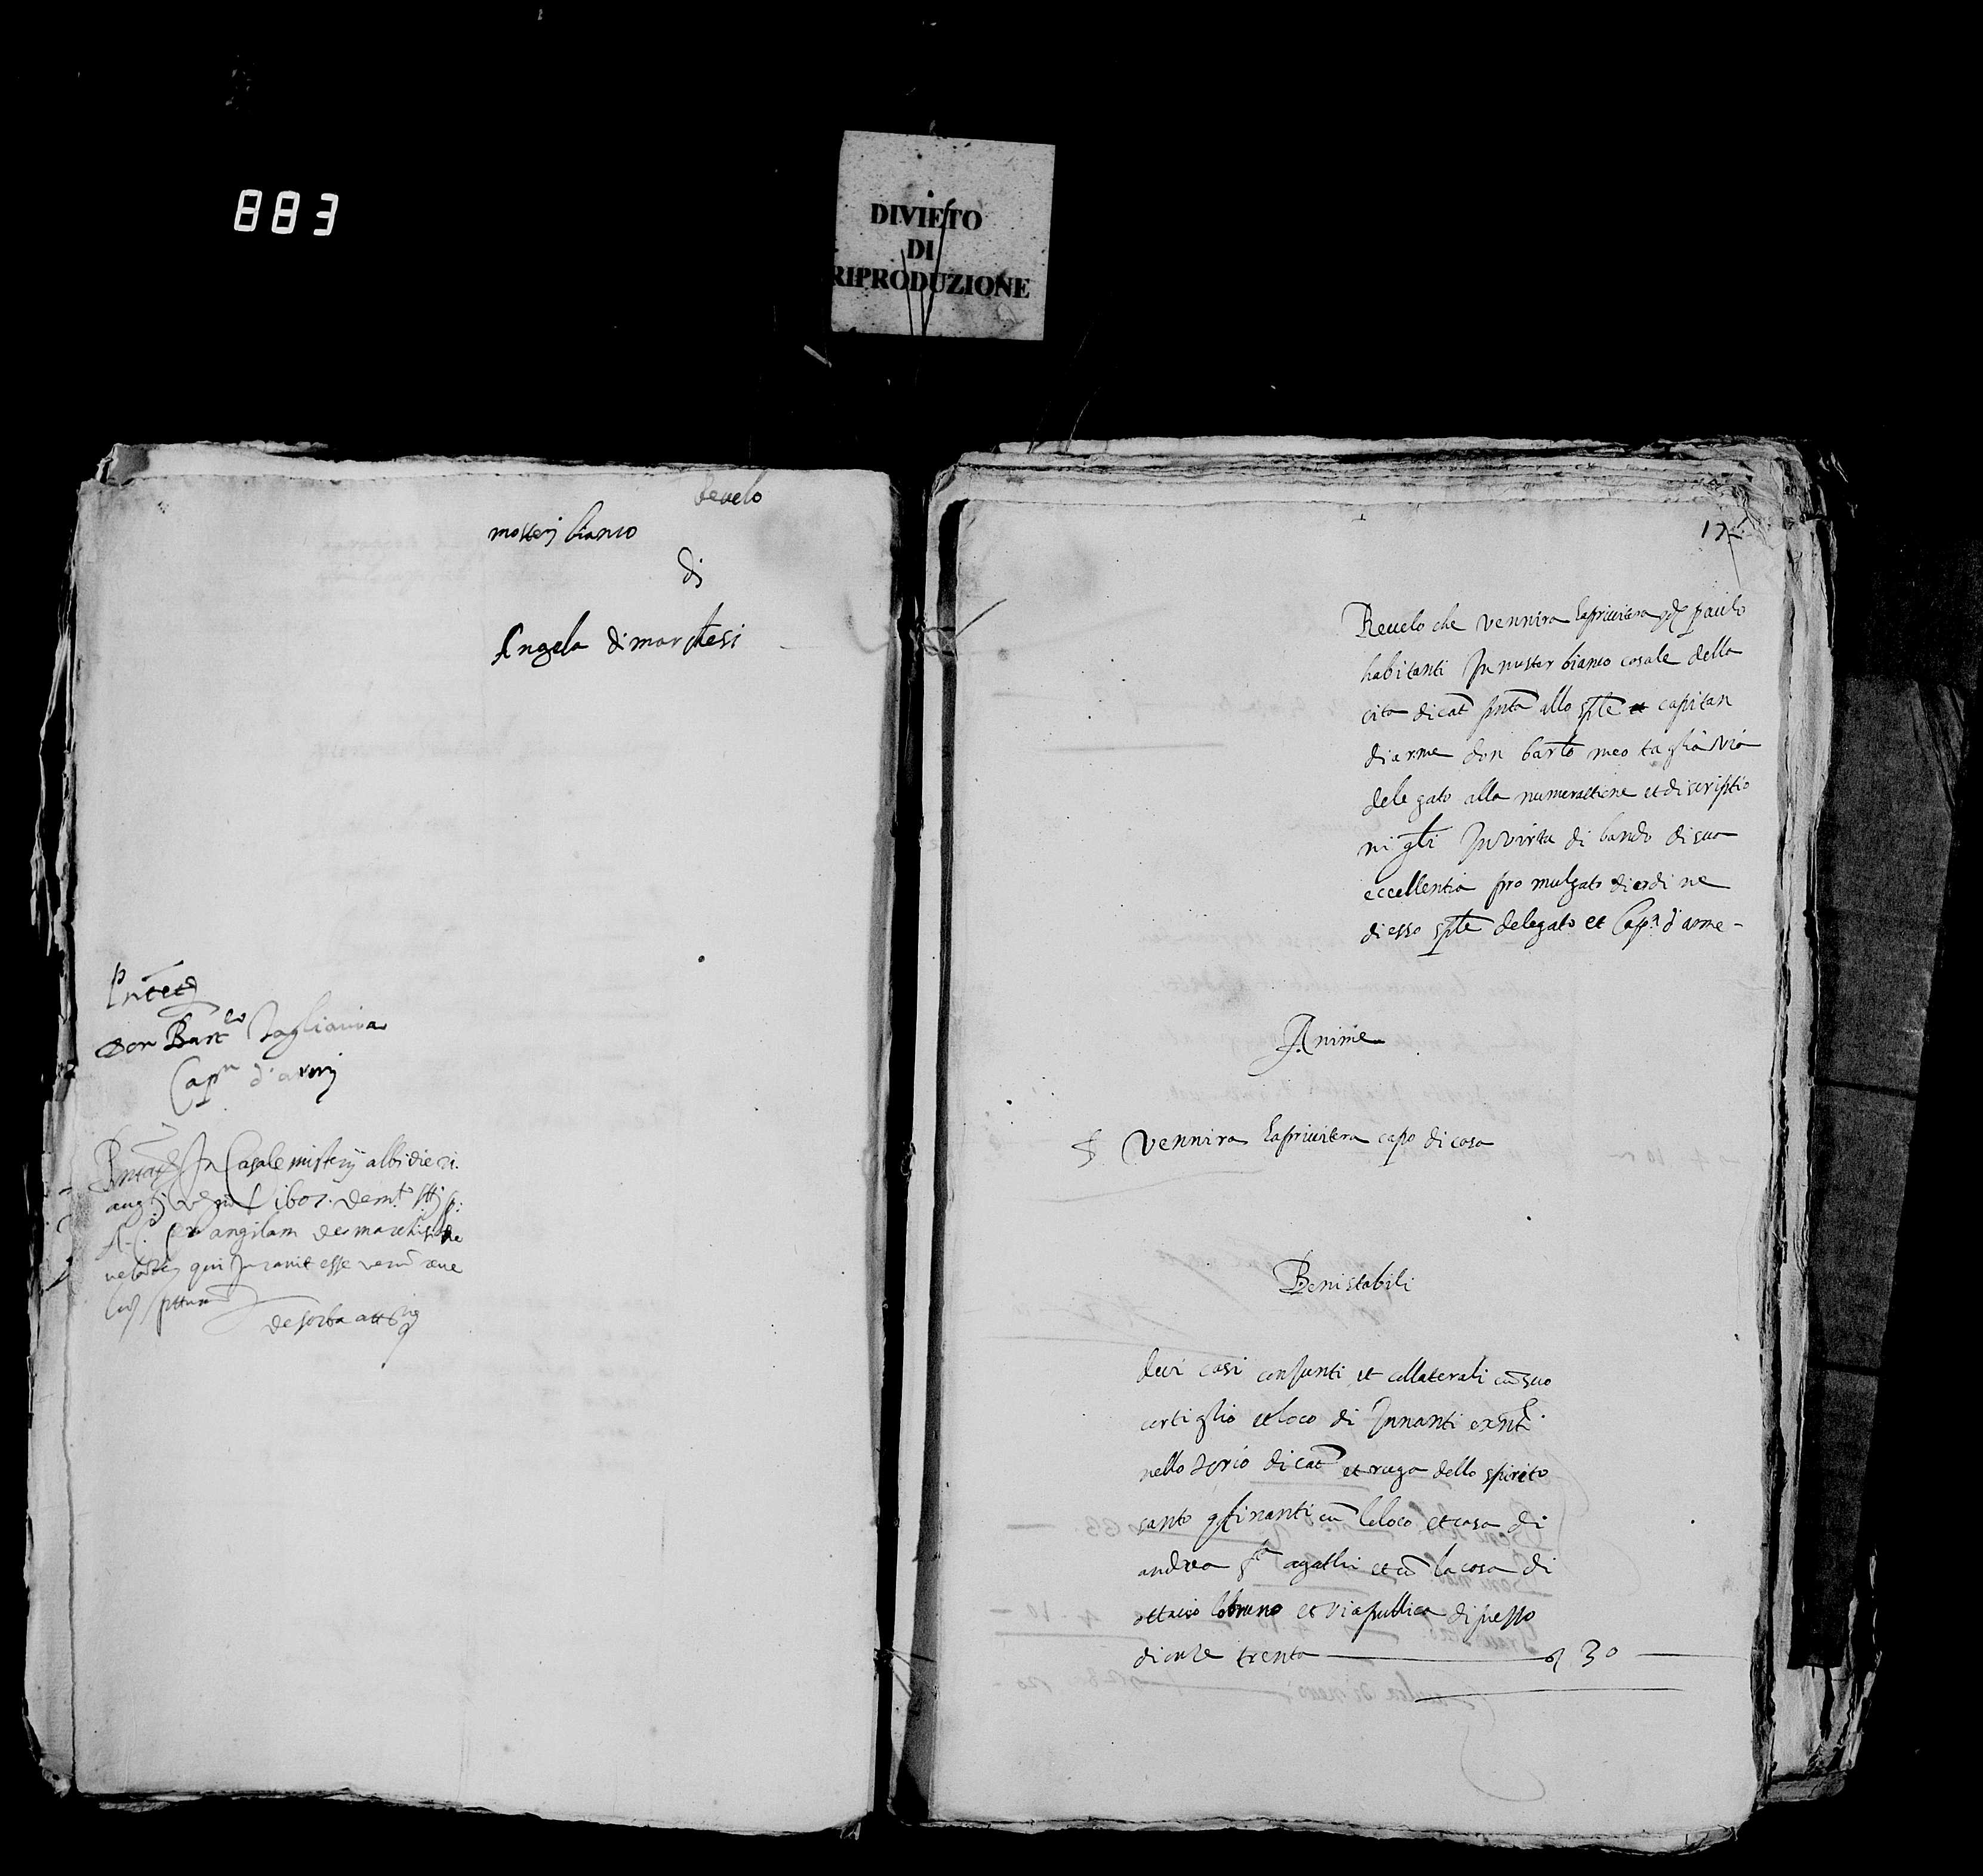 883
DIVIETO
DI
RIPRODUZIONE
Revelo
mosterj bianco
di
Angela di marchesi
Pntetr
Don Bartlo Tagliavia
Capn d'armj
In Casale misterij albi die
1607.
angilam de marchisi
qui Juravit esse verum
de sorba
17
Revelo che vennira laprivitera paulo
habitanti In muster bianco casale della
cita di cata pnta allo splе capitan
di arme don barto meo tagliavia
dele gato alla numeratione et discriptio
ni gli In virtu di bando di sua
eccellentia pro mulgato di ordi ne
di esso splе delegato et Capn d'arme -
Anime
vennira laprivitera capo di casa
Beni stabili
dui casi conjunti et collaterali cu suo
cortiglio et loco di Innanti exnti
nello di cata et ruga dello spirito
santo gfinanti cu lo loco et casa di
andrea agathi et cu la casa di
ottavio lo bruno et via publica di prezzo
di onze trenta 30